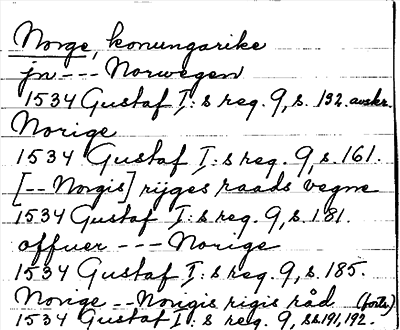 Norge, konungarike
jn --- Norwegen
1534 Gustaf I:s reg. 9, s. 132. avskr.
Norige
1534 Gustaf I:s reg. 9, s. 161.
[-- Norgis] rijges raads vegne
1534 Gustaf I:s reg. 9, s. 181.
offuer --- Norige
1534 Gustaf I:s reg. 9, s. 185.
Norige -- Norigis rigis råd (forts)
1534 Gustaf I:s reg. 9, ss. 191, 192.